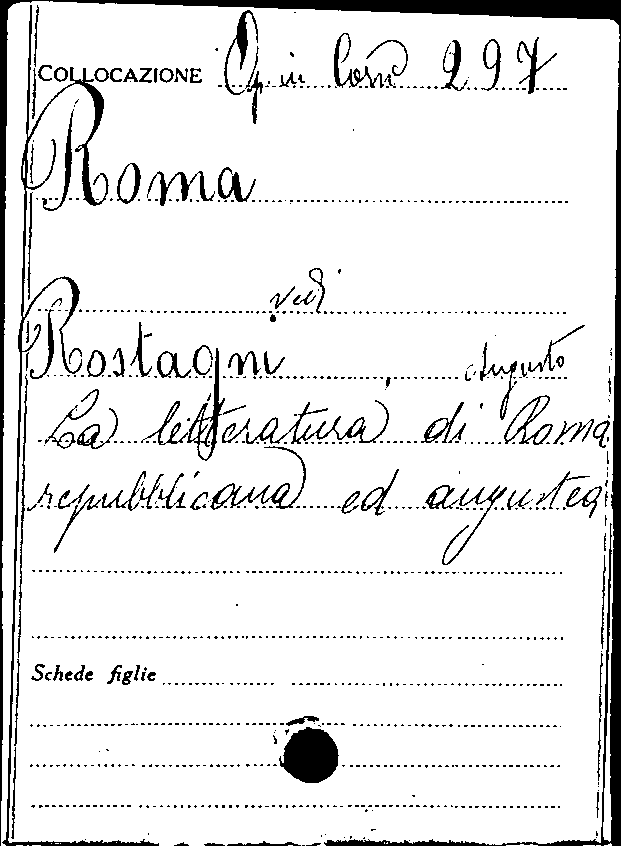 COLLOCAZIONE Op in Corso 297
Roma
vedi
Rostagni, Augusto
La letteratura di Roma
repubblicana ed augustea
Schede figlie